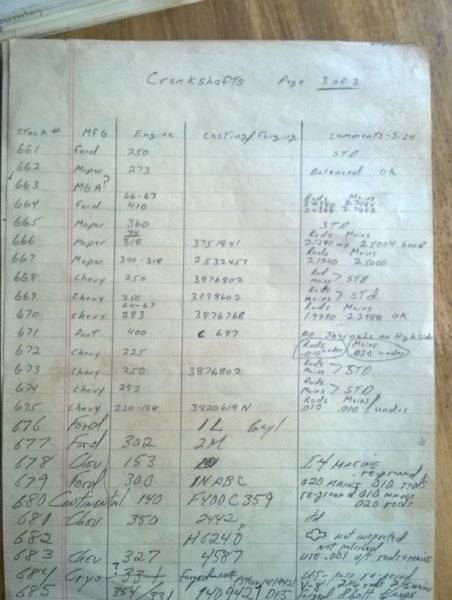 Crankshafts Page 3 of 3
Stock # MFG Engine Casting/Forging Comments-Size
661 Ford 250 STD
662 Mopar 273 Balanced OK
663 MGA?
664 Ford 66-67 410 Rods Mains
665 Mopar 360 STD
666 Mopar 318 3751841 Rods Mains
667 Mopar 340-318 2532457 Rods Mains 2.1240 2.5000
668 Chevy 250 3876802 Rod Mains > STD
669 Chevy 250 3878602 Rods mains > STd
670 Chevy 64-67 283 3876768 Rods Mains 1.9990 2.2988 OK
671 Pont 400 C 697 All Journals on High side
672 Chevy 225 Rods .010 under Mains .020 under
673 Chevy 250 3876802 Rods Mains > STD
674 Chevy 292 Rods Mains > STD
675 Chevy 230-194 3920618N Rods Mains .010 .010 / under
676 Ford 1L 6cyl
677 Ford 302 2M
678 Chev 153 I4 MARINE
679 Ford 300 1NABC reground 020 MAINS 010 rods
680 Continental 140 F400C359 reground 010 mains 020 rods
681 Chev 350 2442 std
682 H6240 ? not inspected
683 Chev 327 4587 not polished USE .001 u/s rods & mains
684 Crys ? 331 Forged
685 354/331